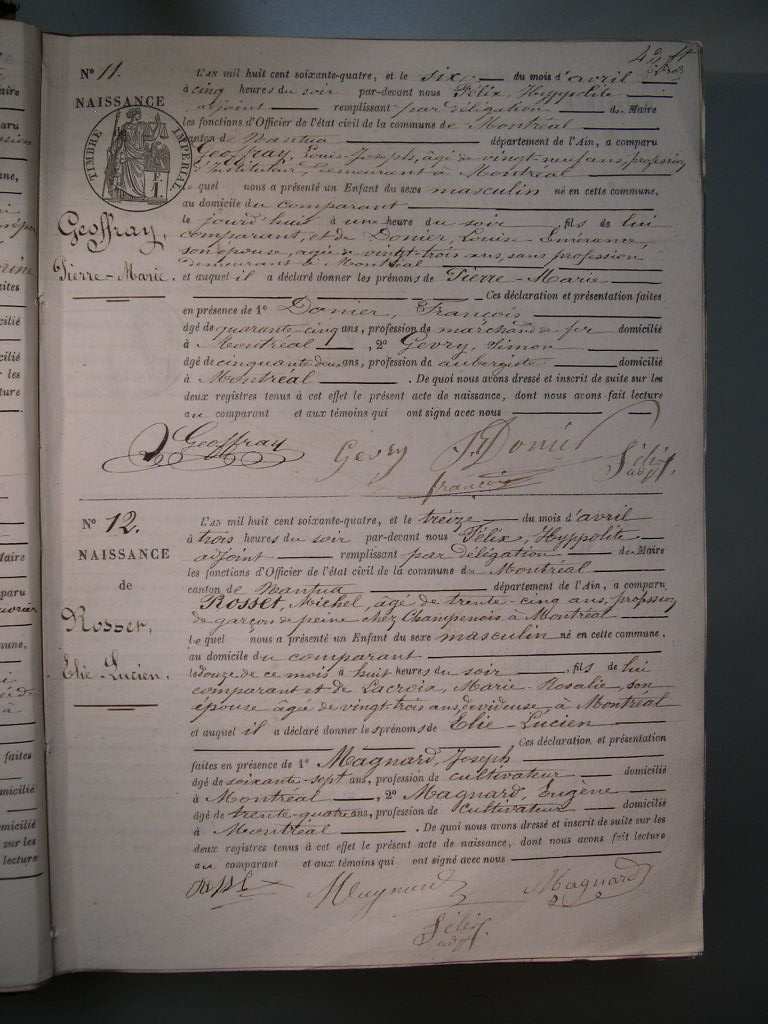 Nº 11.
NAISSANCE
TIMBRE IMPÉRIAL
Geoffray,
Pierre-Marie.
L'AN mil huit cent soixante-quatre, et le six du mois d'avril
à cinq heures du soir par-devant nous Félix, Hyppolite
adjoint remplissant par délégation de Maire
les fonctions d'Officier de l'état civil de la commune de Montréal
canton de Nantua département de l'Ain, a comparu
Geoffray, Louis-Joseph, âgé de vingt-neuf ans, profession
d'instituteur, demeurant à Montréal
lequel nous a présenté un Enfant du sexe masculin né en cette commune,
au domicile du comparant
le jourd'huit à une heure du soir, fils de lui
comparant, et de Donier, Louise-
son épouse, agée de vingt-trois ans, sans profession
demeurant à Montréal
et auquel il a déclaré donner les prénoms de Pierre-Marie
Ces déclaration et présentation faites
en présence de 1º Donier, François
âgé de quarante-cinq ans, profession de marchand de fer domicilié
à Montréal, 2º Gevry, Simon
âgé de cinquante deux ans, profession de aubergiste domicilié
à Montréal. De quoi nous avons dressé et inscrit de suite sur les
deux registres tenus à cet effet le présent acte de naissance, dont nous avons fait lecture
au comparant et aux témoins qui ont signé avec nous
Geoffray Gevry Donier françois Félix adjt.
Nº 12.
NAISSANCE
de
Rosset,
Elie-Lucien.
L'AN mil huit cent soixante-quatre, et le treize du mois d'avril
à trois heures du soir par-devant nous Félix, Hyppolite
adjoint remplissant par délégation du Maire
les fonctions d'Officier de l'état civil de la commune de Montréal
canton de Nantua département de l'Ain, a comparu
Rosset, Michel, âgé de trente-cinq ans, profession
de garçon de peine chez Champenois à Montréal
lequel nous a présenté un Enfant du sexe masculin né en cette commune,
au domicile du comparant
le douze de ce mois à huit heures du soir, fils de lui
comparant et de Lacroix, Marie-Rosalie, son
épouse âgée de vingt-trois ans, dévideuse, à Montréal
et auquel il a déclaré donner les prénoms de Elie-Lucien
Ces déclaration, et présentation
faites en présence de 1º Magnard, Joseph
âgé de soixante-sept ans, profession de cultivateur domicilié
à Montréal, 2º Magnard, Eugène
âgé de trente-quatre ans, profession de cultivateur domicilié
à Montréal. De quoi nous avons dressé et inscrit de suite sur les
deux registres tenus à cet effet le présent acte de naissance, dont nous avons fait lecture
au comparant et aux témoins qui ont signé avec nous
Magnard Magnard
Félix adjt.